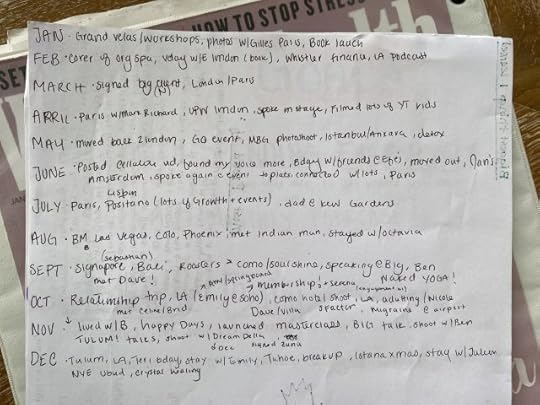 HOW TO STOP STRES
SET
JAN
JAN - Grand velas/workshops, photos w/Gilles Paris, Book lauch
FEB - Cover of org spa, vday w/E london (bare), Whistler Tihana, LA podcast
MARCH - signed big client, London/Paris
APRIL - Paris w/Mark Richard, UPW london, spoke on stage, Filmed lots of YT vids
MAY - moved back 2 london, GO event, MBG photoshoot, Istanbul/Ankara, detox
JUNE - Posted cellular vid, found my voice more, Bday w/friends @ Ehe's, moved out, Jan's
Amsterdam, spoke again @ event to place, connected w/lots, Paris
Lisbon
JULY - Paris, Positano (lots of Growth + events), dad @ kew Gardens
AUG - BM, Las Vegas, Colo, Phoenix, met Indian man, stayed w/octavia
(sebastian)
SEPT - Signapore, Bali, Roasters > Como/soulshine, speaking @ Big, Ben
met Dave! Naked YOGA!
OCT - Relationship trip, LA (Emily @ soho), como hotel shoot, LA, adulting/Nicole
membership + serena
met Celine/Brid Dave/villa Migraine @ airport
NOV - lived w/B, happy Days, launched masterclass, BIG talk, shoot w/Ben
TULUM! talks, shoot w/Dream Della
DEC - Tulum, LA, Teri bday, stay w/Emily, Tahoe, breakup, Lotana xmas, stay w/Juleen
NYE Ubud, crystal healing